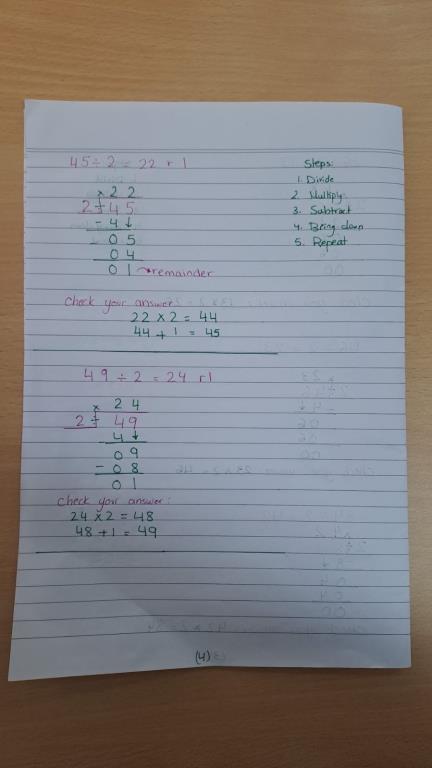 45 ÷ 2 = 22 r 1
× 2 2
2 ÷ 4 5
- 4 ↓
0 5
0 4
0 1 → remainder
Check your answer:
22 × 2 = 44
44 + 1 = 45
Steps:
1. Divide
2. Multiply
3. Subtract
4. Bring down
5. Repeat
49 ÷ 2 = 24 r1
× 2 4
2 ÷ 49
4 ↓
0 9
- 0 8
0 1
Check your answer:
24 × 2 = 48
48 + 1 = 49
(4)